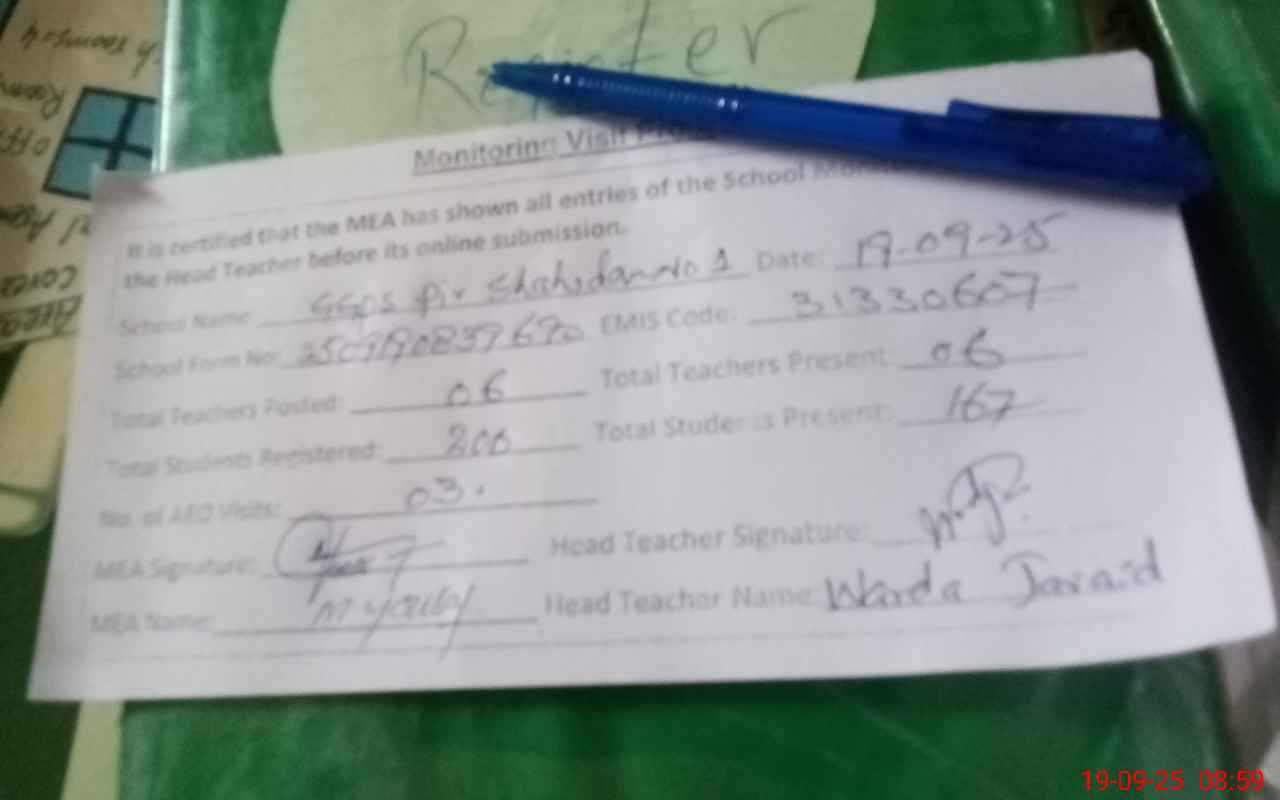 Register
Monitoring Visit
It is certified that the MEA has shown all entries of the School
the Head Teacher before its online submission.
School Name: GGPS Pir Shahidan No 1 Date: 19-09-25
School Form No: 2509190839690 EMIS Code: 31330607
Total Teachers Posted: 06 Total Teachers Present: 06
Total Students Registered: 200 Total Students Present: 167
No. of AEO Visits: 03.
MEA Signature: Head Teacher Signature:
MEA Name: Head Teacher Name: Warda Javaid
19-09-25 08:59